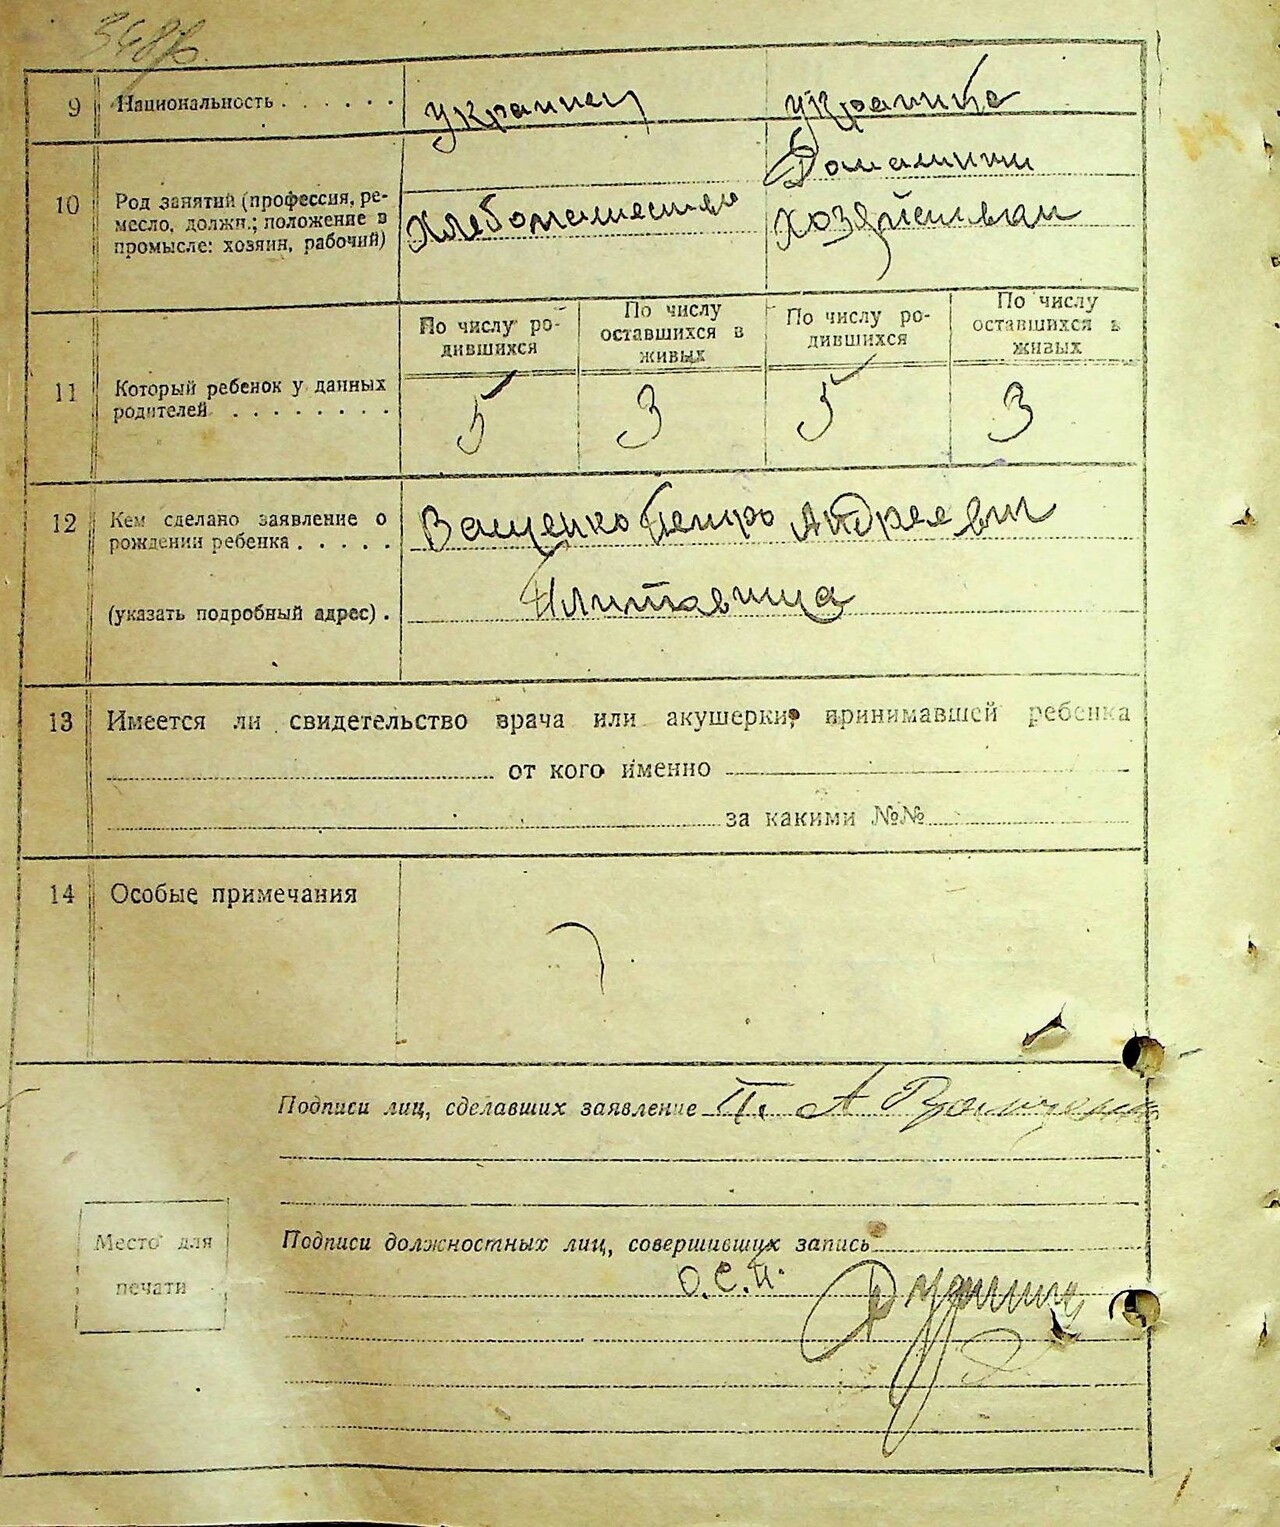 9 Национальность . . . . . . украинец украинка
10 Род занятий (профессия, ре-
месло, должн.; положение в
промысле: хозяин, рабочий)
Хлебопашество
Домашни
хозяйствам
По числу ро-
дившихся
По числу
оставшихся в
живых
По числу ро-
дившихся
По числу
оставшихся в
живых
11 Который ребенок у данных
родителей . . . . . . . .
5 3 5 3
12 Кем сделано заявление о
рождении ребенка . . . . .
Ващенко Петро Андреевич
(указать подробный адрес) .
13 Имеется ли свидетельство врача или акушерки, принимавшей ребенка
от кого именно
за какими №№
14 Особые примечания
Подписи лиц, сделавших заявление П. А Ващенко
Место для
печати
Подписи должностных лиц, совершивших запись